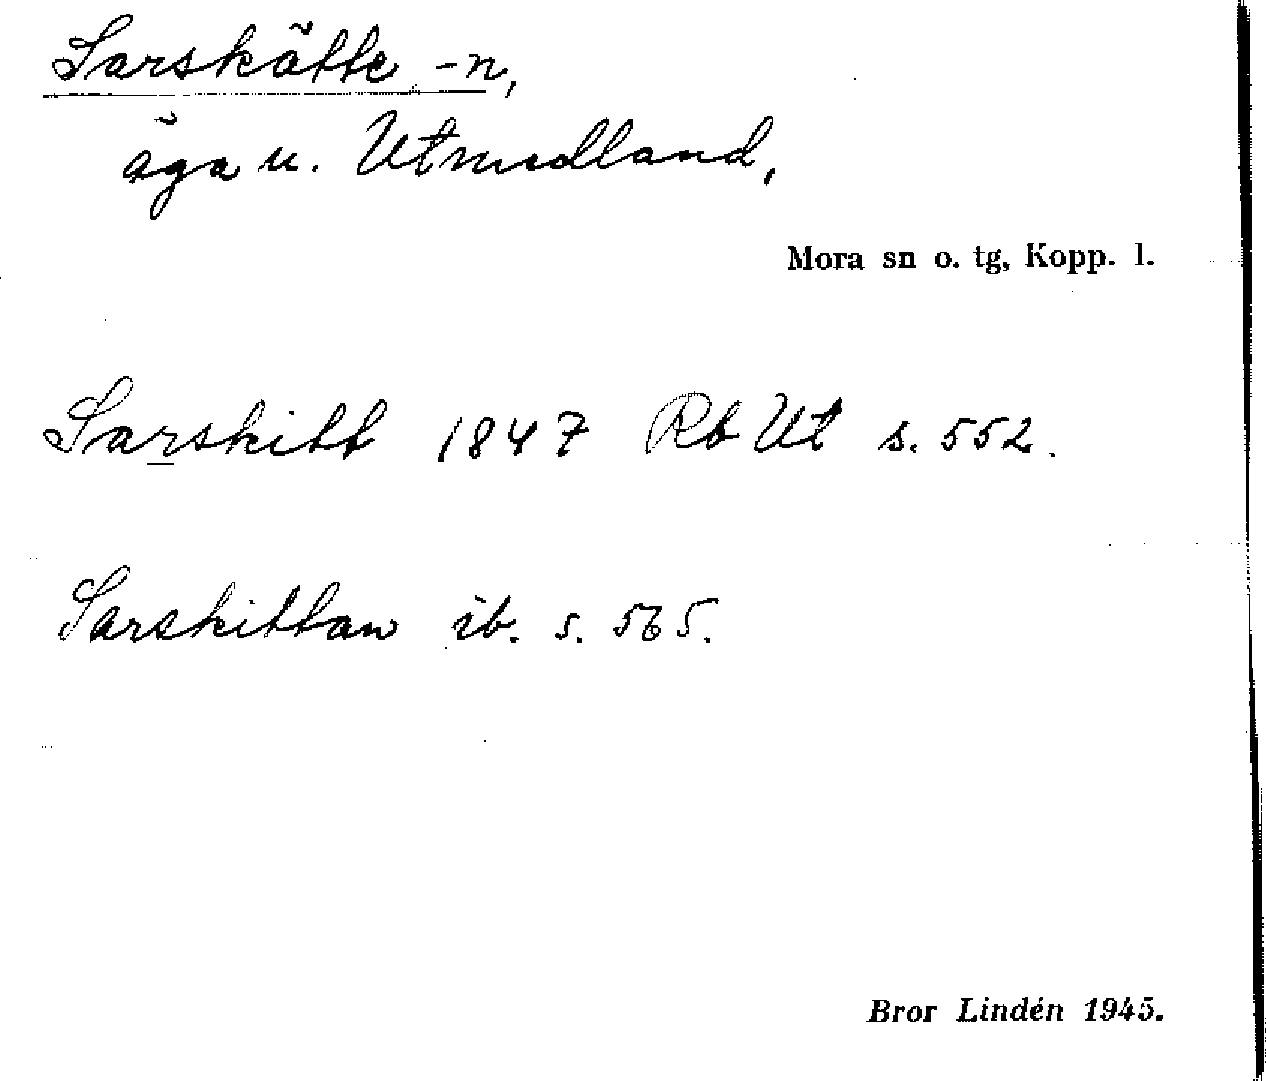 Sarskätte, -n,
äga u. Utmedland,
Mora sn o. tg, Kopp. l.
Sarskitt 1847 Rb Ut s. 552.
Sarskittan ib. s. 565.
Bror Lindén 1945.